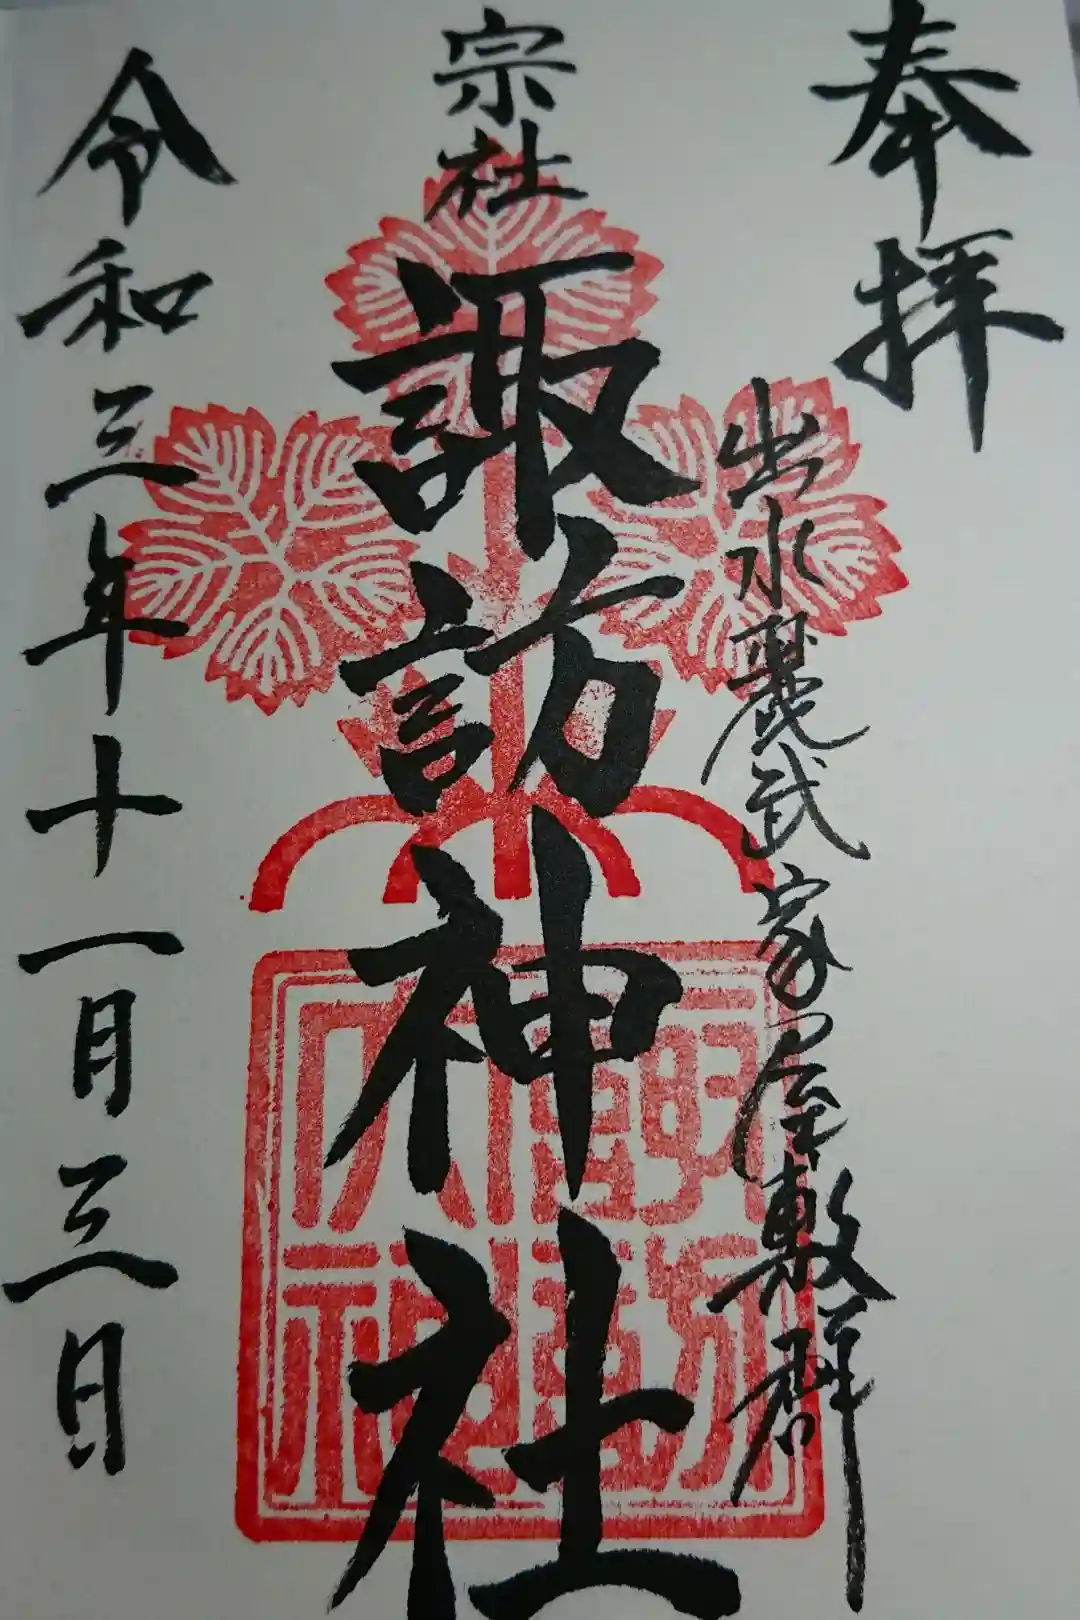 奉拝
出水麓武家屋敷群
宗社
諏訪神社
令和三年十一月三日